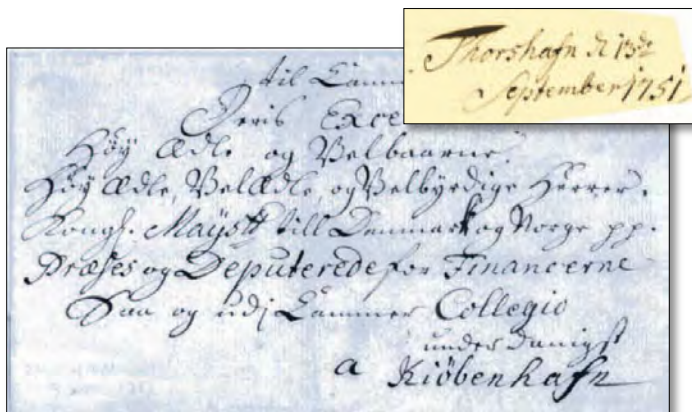 Thorshafn d 13de
September 1751
til Cammer
Deris Exce
Høy Ædle og Velbaarne.
Høy Ædle, VelÆdle, og Velbyrdige Herrer.
Kongl. Mayst til Denmark og Norge pp.
Præses og Deputerede for Financerne
Saa og udj Cammer Collegio
underdanigst
a Kiöbenhafn